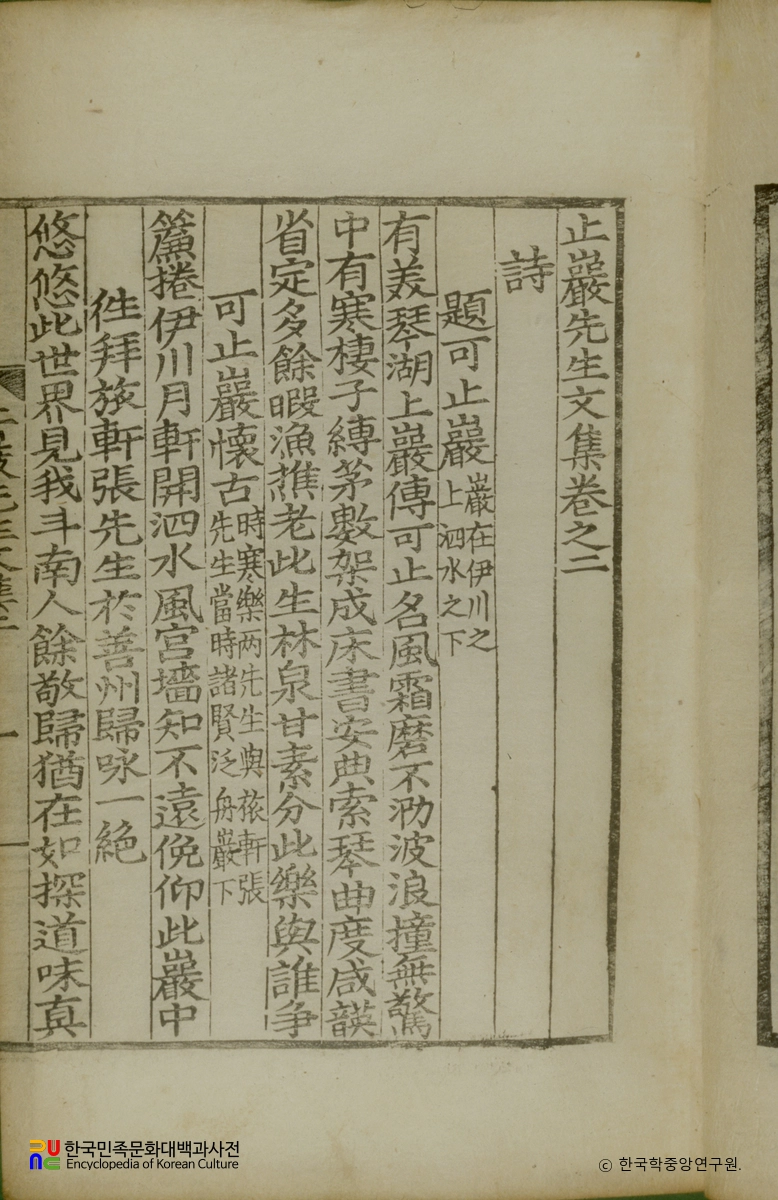 止巖先生文集卷之二
詩
題可止巖 巖在伊川之上泗水之下
有美琴湖上巖傳可止名風霜磨不泐波浪撞無驚
中有寒棲子縛茅數架成床書安典索琴曲度咸韺
省定多餘暇漁樵老此生林泉甘素分此樂與誰爭
可止巖懷古 時寒樂两先生與旅軒張先生當時諸賢泛舟巖下
簾捲伊川月軒開泗水風宮墻知不遠俛仰此巖中
徃拜旅軒張先生於善州歸咏一絶
悠悠此世界見我斗南人餘敬歸猶在如探道味真
한국민족문화대백과사전
Encyclopedia of Korean Culture
ⓒ 한국학중앙연구원.